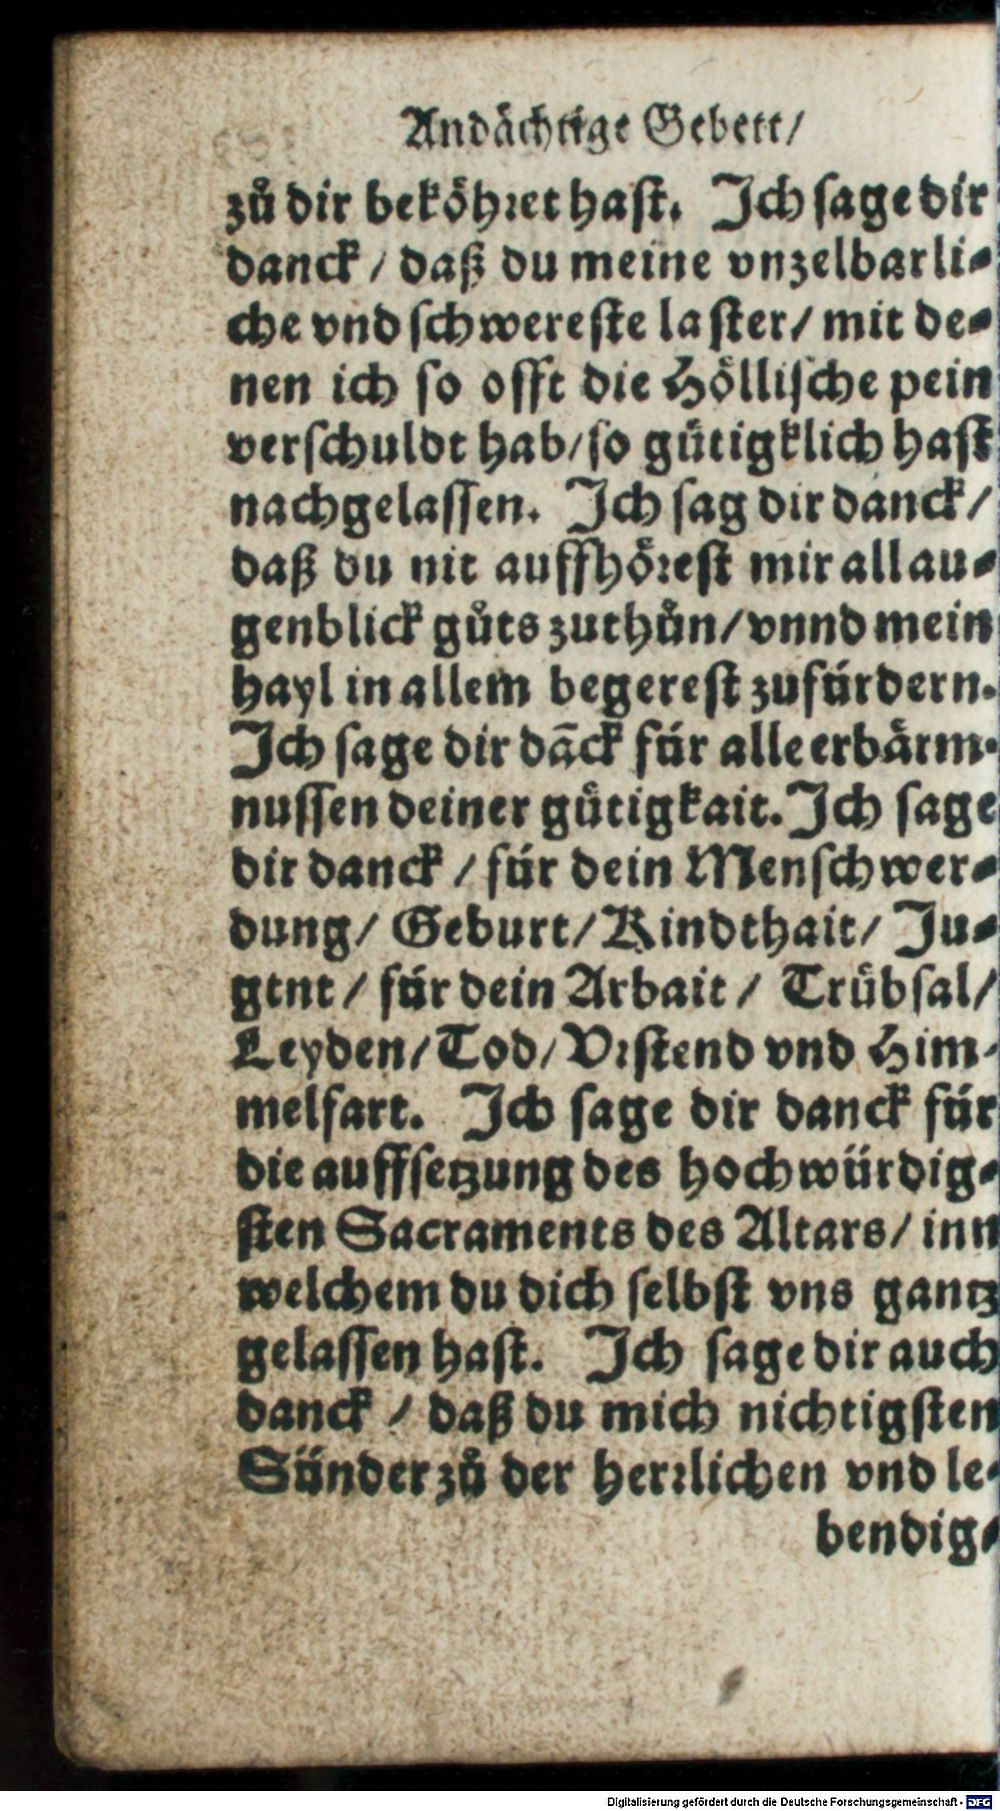 Andächtige Gebett/
zů dir beköhꝛet hast. Ich sage dir
danck / daß du meine vnzelbarli-
che vnd schwereste laster/ mit de-
nen ich so offt die Höllische pein
verschuldt hab/ so gütigklich hast
nachgelassen. Ich sag dir danck/
daß du nit auffhöꝛest mir all au-
genblick gůts zuthůn/ vnnd mein
hayl in allem begerest zufürdern.
Ich sage dir dāck für alle erbärm-
nussen deiner gütigkait. Ich sage
dir danck / für dein Menschwer-
dung/ Geburt/ Kindthait/ Ju-
gtnt / für dein Arbait / Trübsal/
Leyden/ Tod/ Vꝛstend vnd Him-
melfart. Ich sage dir danck für
die auffsetzung des hochwürdig-
sten Sacraments des Altars/ inn
welchem du dich selbst vns gantz
gelassen hast. Ich sage dir auch
danck / daß du mich nichtigsten
Sünder zů der herꝛlichen vnd le-
bendig-
Digitalisierung gefördert durch die Deutsche Forschungsgemeinschaft - DFG